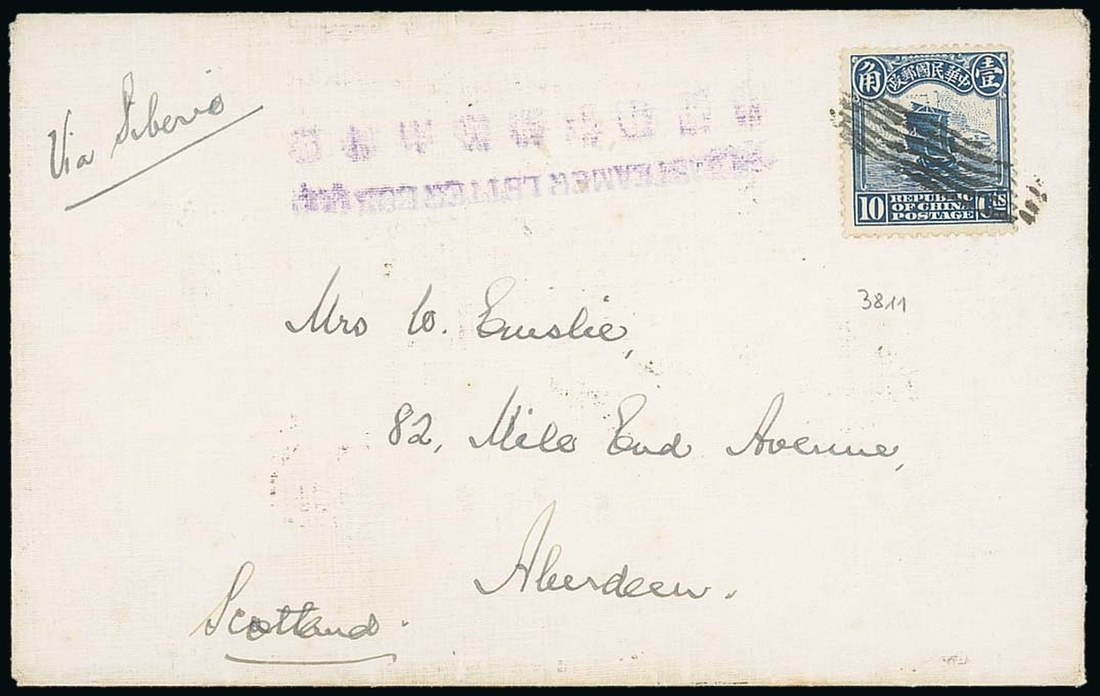 Via Siberia
角 中華民國郵政 壹
10 REPUBLIC OF CHINA POSTAGE Cts
3811
Mrs W. Emslie,
82, Mile End Avenue,
Aberdeen.
Scotland.